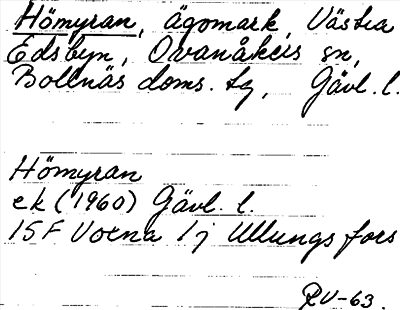 Hömyran, ägomark, Västra
Edsbyn, Ovanåkers sn,
Bollnäs doms. tg, Gävl. l.
Hömyran
ek (1960) Gävl. l.
15F Voxna 1j Ullungsfors
RV-63.